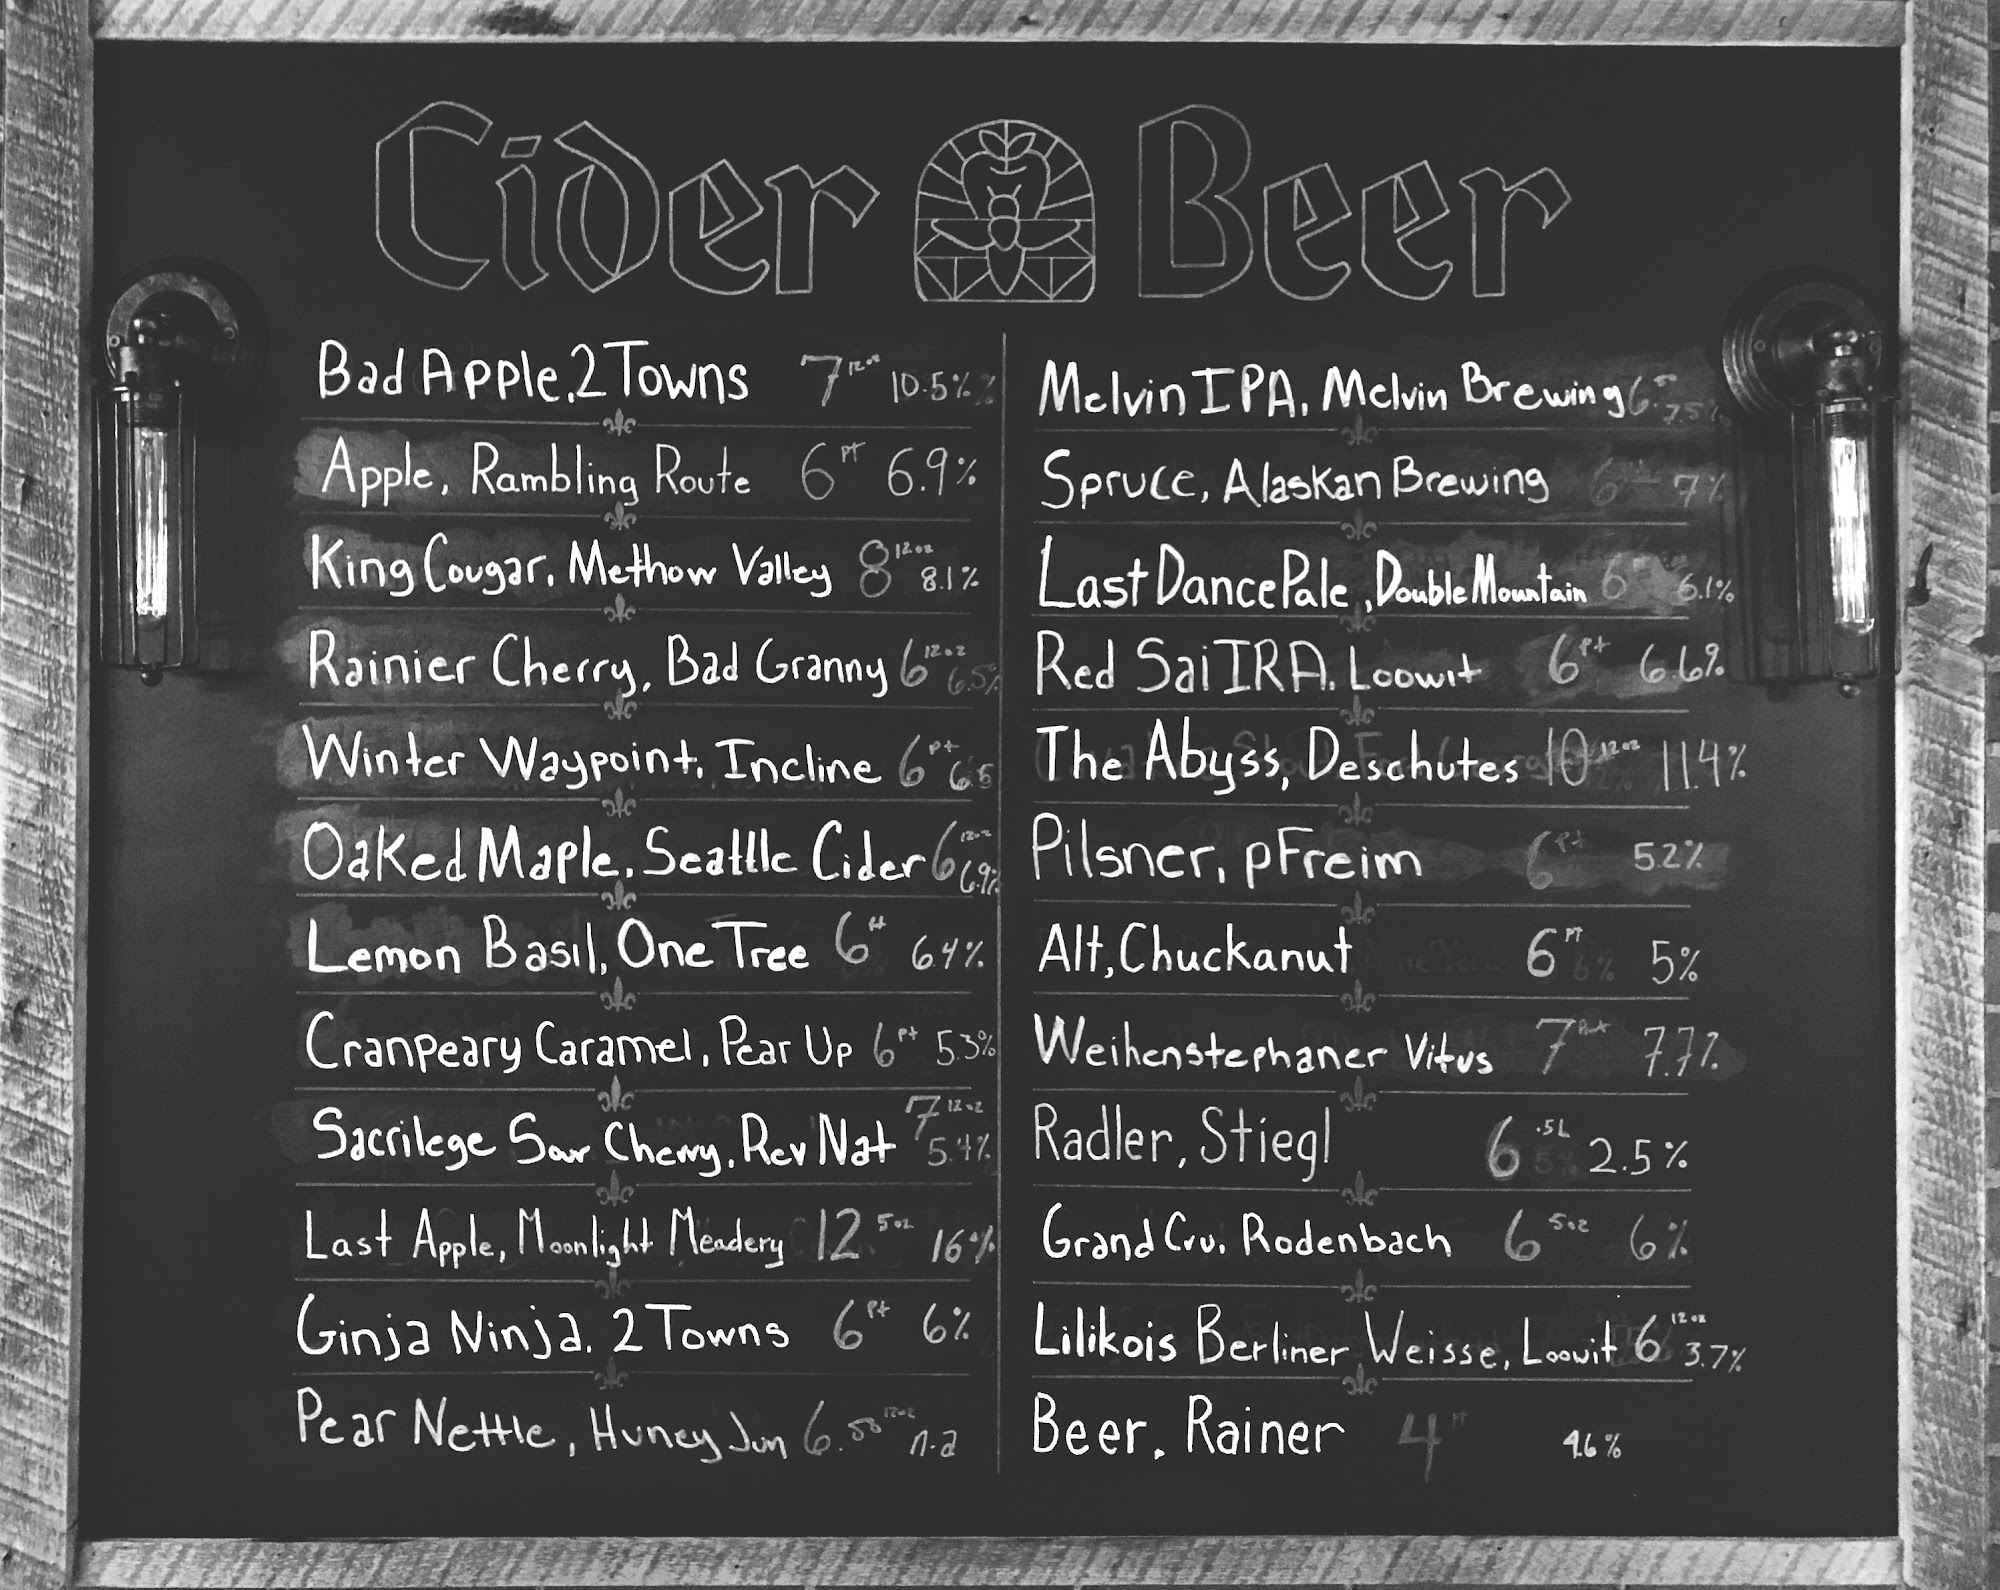 Cider Beer
Bad Apple, 2 Towns 7 12oz 10.5%
Apple, Rambling Route 6 PT 6.9%
King Cougar, Methow Valley 8 12oz 8.1%
Rainier Cherry, Bad Granny 6 12oz 6.5%
Winter Waypoint, Incline 6 pt 6.5
Oaked Maple, Seattle Cider 6 12oz 6.9%
Lemon Basil, One Tree 6 pt 6.4%
Cranpeary Caramel, Pear Up 6 pt 5.3%
Sacrilege Sour Cherry, Rev Nat 7 12oz 5.4%
Last Apple, Moonlight Meadery 12 5oz 16%
Ginja Ninja, 2 Towns 6 pt 6%
Pear Nettle, Huney Jun 6.50 12oz n.a
Melvin IPA, Melvin Brewing 6. 7.5%
Spruce, Alaskan Brewing 6 7%
Last Dance Pale, Double Mountain 6 6.1%
Red Sai IRA, Loowit 6 pt 6.6%
The Abyss, Deschutes 10 12oz 11.4%
Pilsner, pFreim 6 pt 5.2%
Alt, Chuckanut 6 PT 5%
Weihenstephaner Vitus 7 7.7%
Radler, Stiegl 6 .5L 2.5%
Grand Cru, Rodenbach 6 5oz 6%
Lilikois Berliner Weisse, Loowit 6 12oz 3.7%
Beer, Rainer 4 PT 4.6%